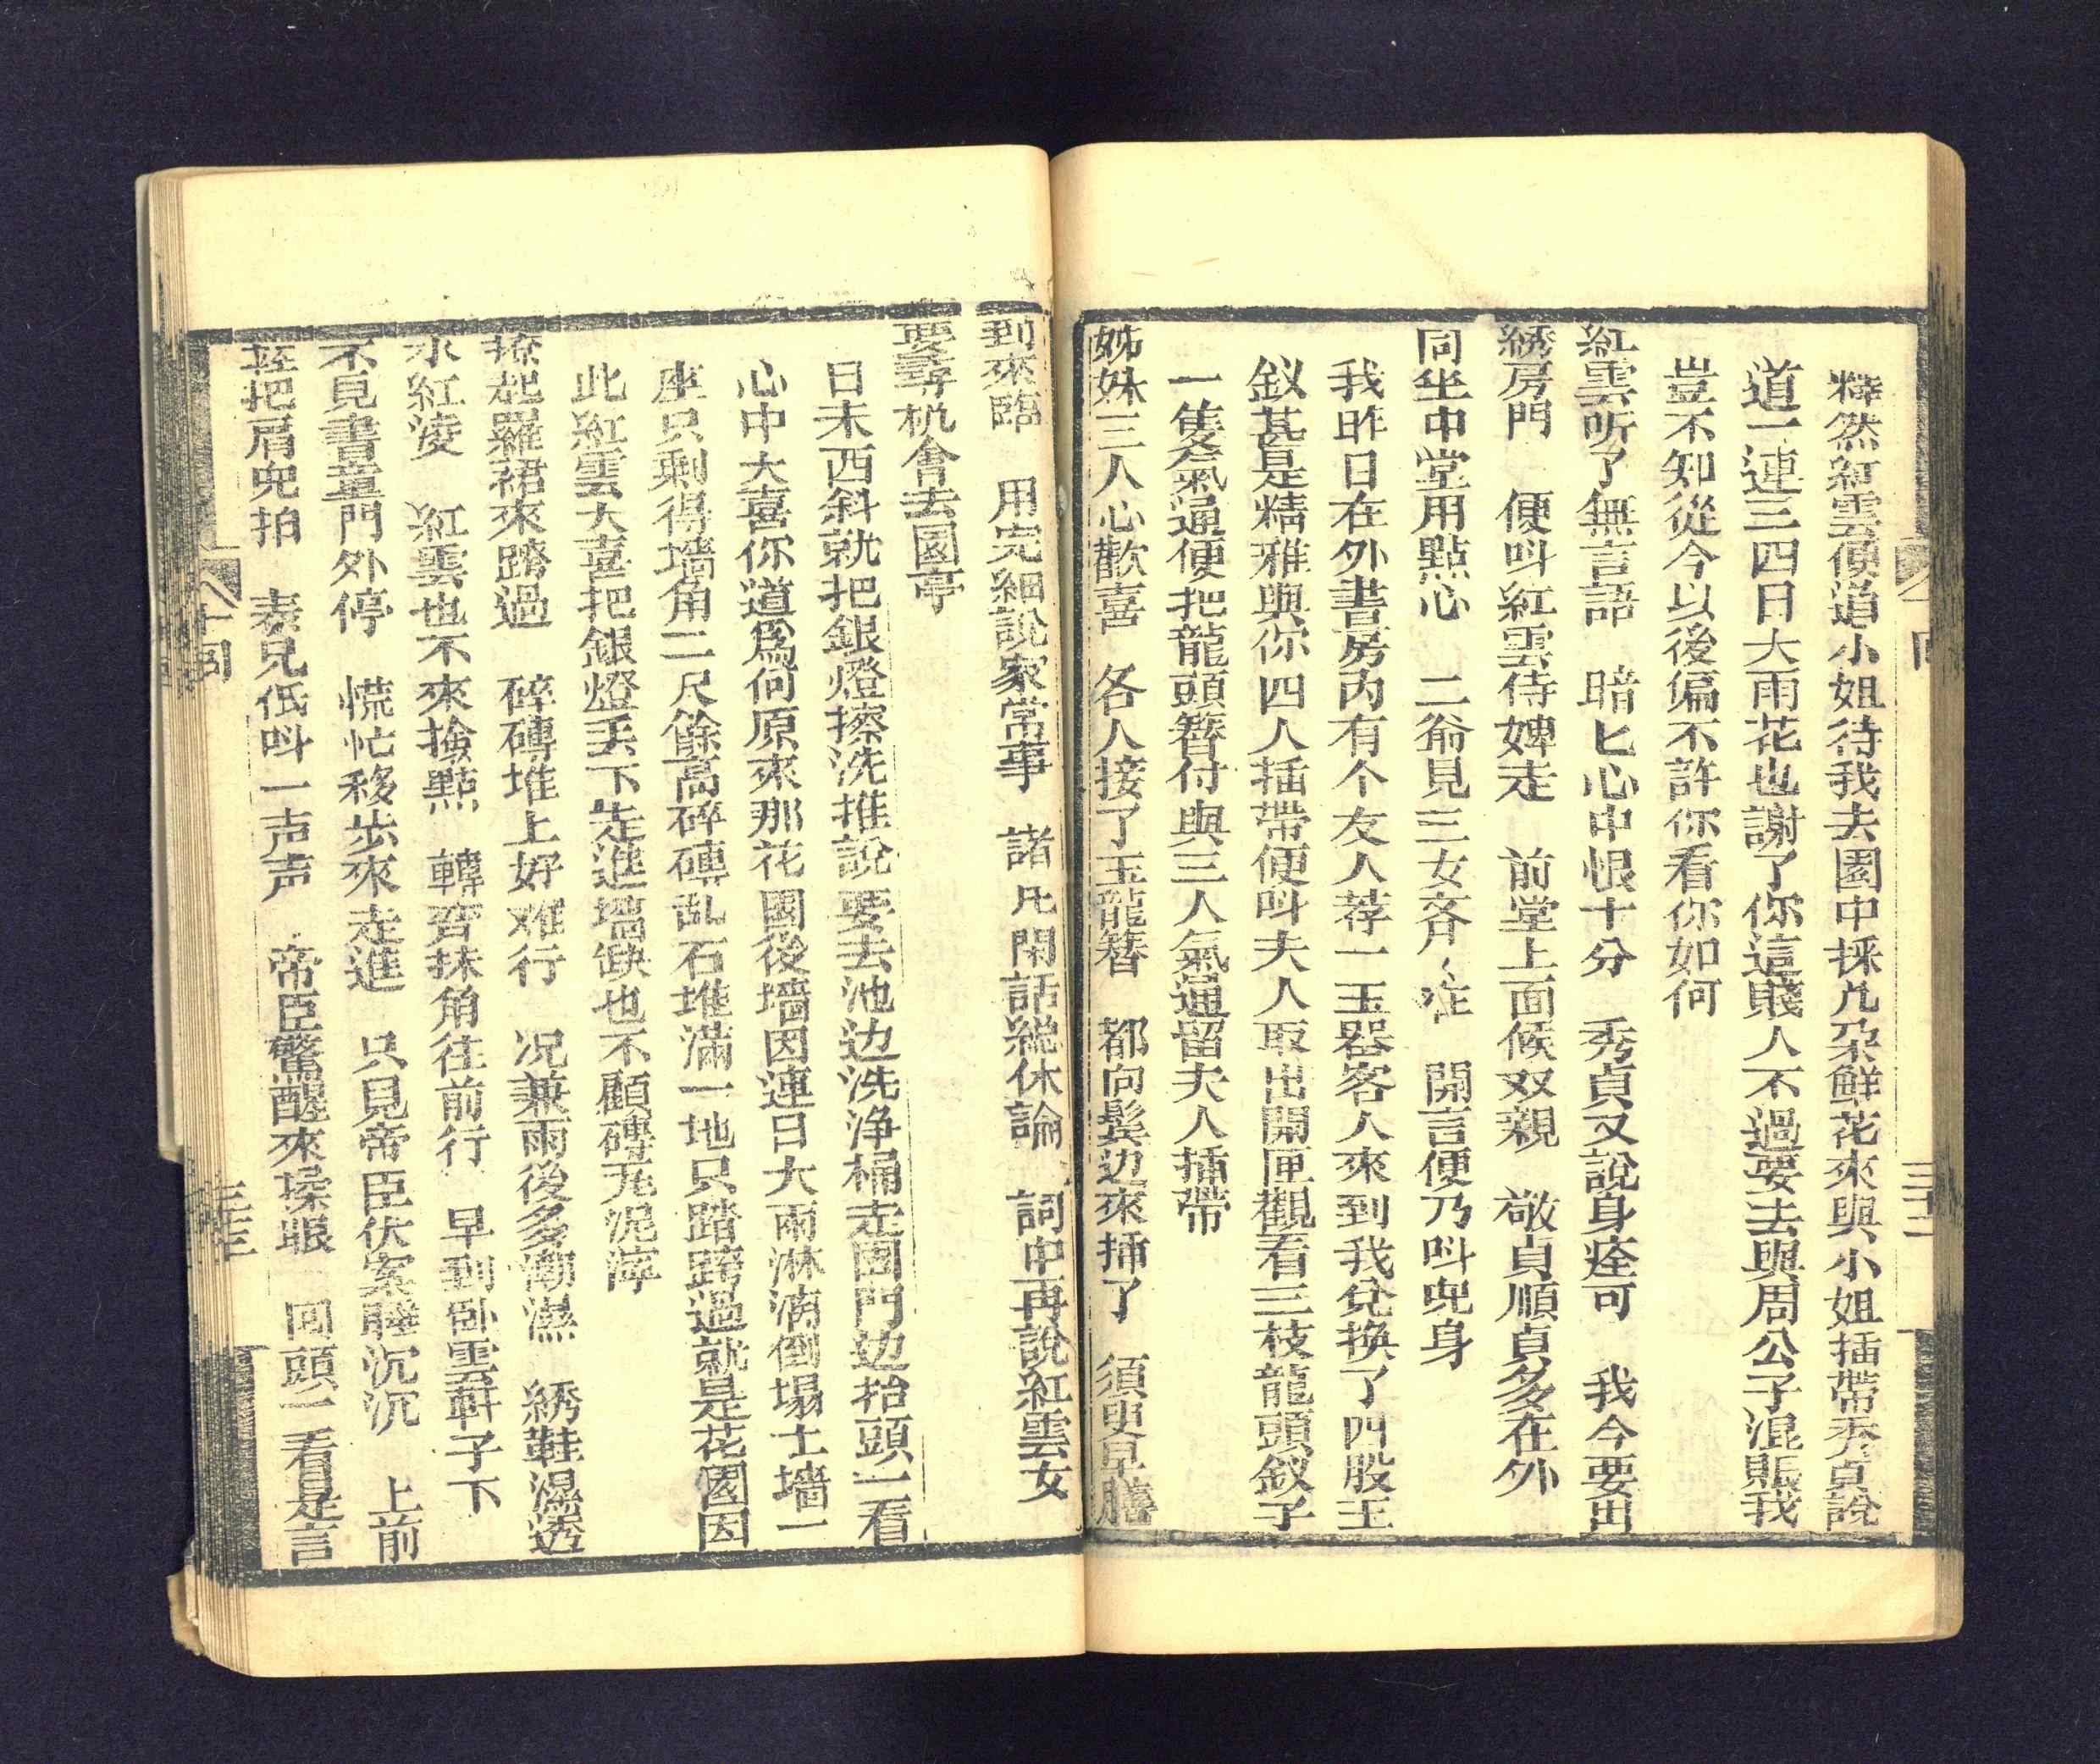 釋然紅雲便道小姐待我去園中採凢朶鮮花來與小姐插帶秀貞說
道一連三四日大雨花也謝了你這賤人不過要去與周公子混賬我
豈不知從今以後偏不許你看你如何
紅雲听了無言語 暗匕心中恨十分 秀貞又說身痊可 我今要出
綉房門 便呌紅雲侍婢走 前堂上面候双親 敬貞順貞多在外
同坐中堂用點心 二翁見三女斉〻在 開言便乃呌兜身
我昨日在外書房内有个友人荐一玉器客人來到我兌換了四股玉
釵甚是精雅與你四人插帶便呌夫人取出開匣觀看三枝龍頭釵子
一隻氣通便把龍頭簪付與三人氣通留夫人插帶
姊妹三人心歡喜 各人接了玉龍簪 都向鬂边來插了 須臾早膳
到來臨 用完細說家常事 諸凡閑話総休論 詞中再說紅雲女
要尋机會去園亭
日未西斜就把銀燈擦洗推說要去池边洗浄桶走園門边抬頭一看
心中大喜你道爲何原來那花園後墻因連日大雨淋漓倒塌土墻一
座只剩得墻角二尺餘高碎磚乱石堆滿一地只踏跨過就是花園因
此紅雲大喜把銀燈丢下走進墻缺也不顧磚瓦泥濘
撩起羅裙來跨過 碎磚堆上好难行 况兼雨後多潮濕 綉鞋濕透
水紅淩 紅雲也不來撿點 轉彎抹角往前行 早到卧雲軒子下
不見書童門外停 慌忙移步來走進 只見帝臣伏案睡沉沉 上前
輕把肩兜拍 表兄低呌一声声 帝臣驚醒來搡眼 回頭一看是言
十回
三十二
三十三